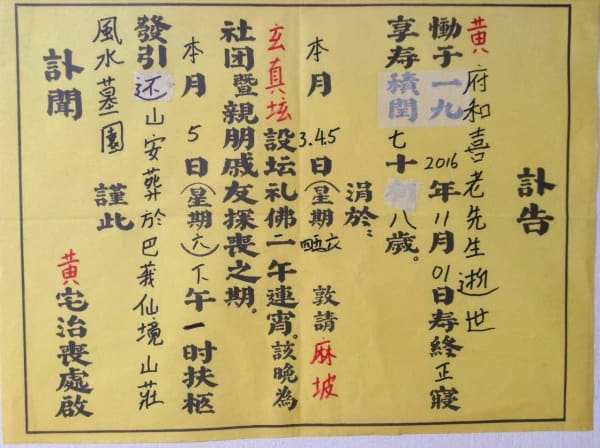 訃告
黄府和喜老先生逝世
慟于一九2016年11月01日寿終正寢
享寿積閏七十八歲。
涓於：
本月3.4.5日（星期四五六 敦請麻坡
玄真坛設坛礼佛二午連宵。該晚為
社团暨親朋戚友探喪之期。
本月5日（星期六）下午一时扶柩
發引还山安葬於巴莪仙境山莊
風水墓園 謹此
訃聞
黄宅治喪處啟